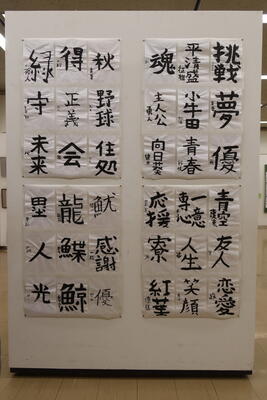 挑戦
夢
優
平清盛
小牛田
青春
魂
主人公
向日葵
秋
野球
住処
得
正義
会
緑
守
未来
青空
友人
恋愛
一意専心
人生
笑顔
応援
寮
紅葉
魷
感謝
優
龍
鰈
鯨
塁
人
光